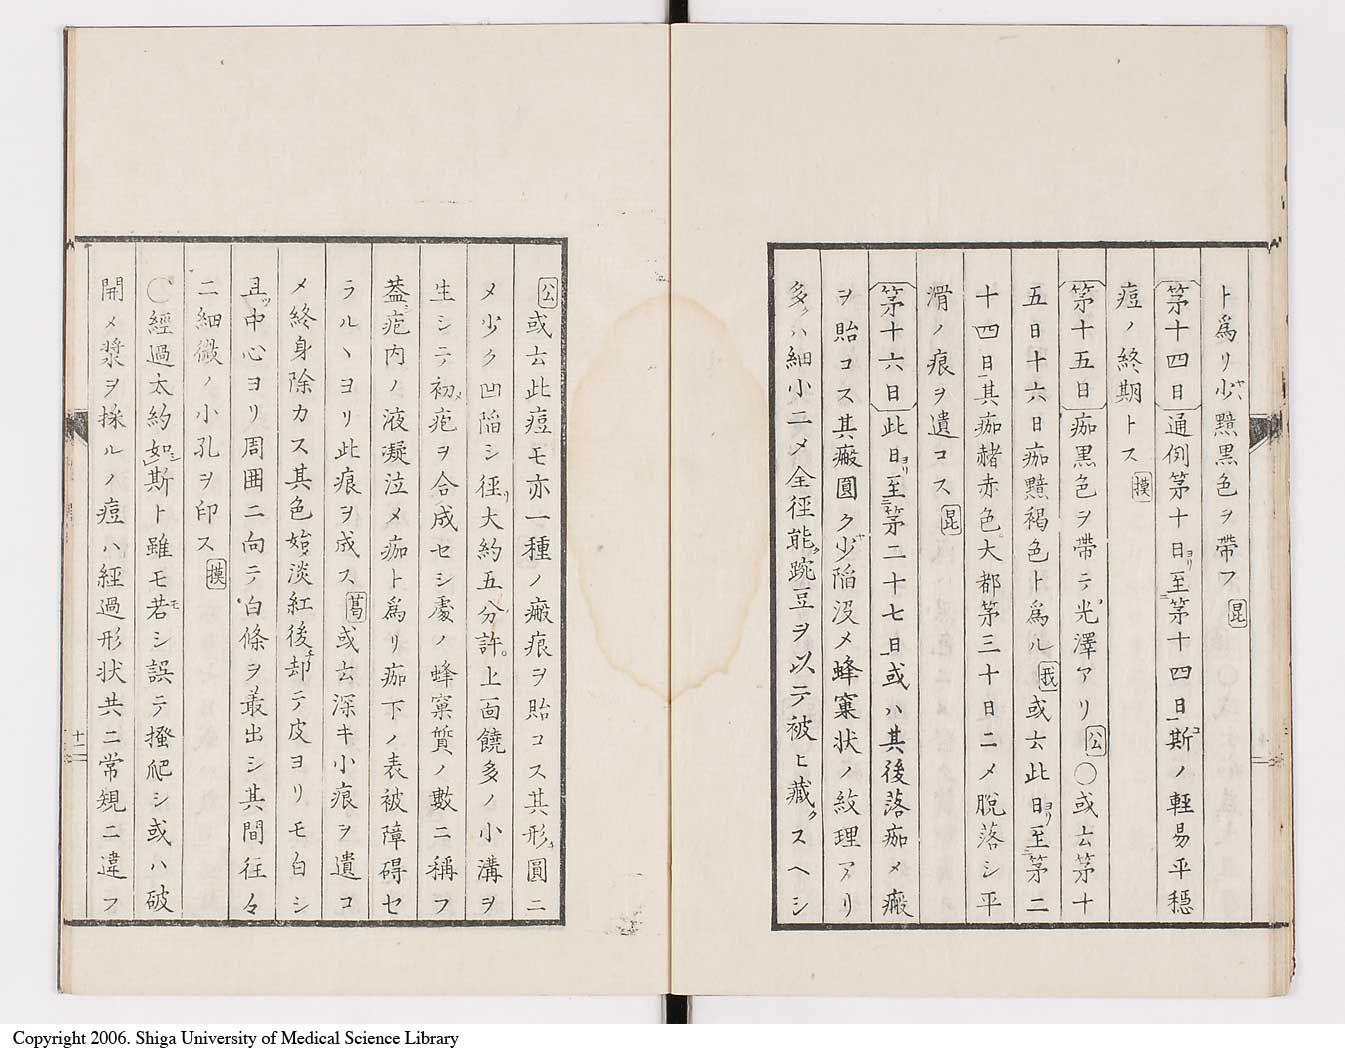 ト爲リ少ヤ、黯黒色ヲ帶フ 昆
第十四日 通例第十日ヨリ至第十四日ニ斯ノ輕易平穩
痘ノ終期トス 摸
第十五日 痂黒色ヲ帶テ光澤アリ 公 〇或云第十
五日十六日痂黯褐色ト爲ル 我 或云此日ヨリ至第二
十四日其痂赭赤色大都第三十日ニメ脱落シ平
滑ノ痕ヲ遺コス 昆
第十六日 此日ヨリ至第二十七日或ハ其後落痂メ瘢
ヲ貽コス其瘢圓ク少ヤ陷没メ蜂窠状ノ紋理アリ
多クハ細小ニメ全徑能ク豌豆ヲ以テ被ヒ藏クスヘシ
公 或云此痘モ亦一種ノ瘢痕ヲ貽コス其形圓ニ
メ少ク凹陷シ徑リ大約五分許上面饒多ノ小溝ヲ
生シテ初メ疱ヲ合成セシ處ノ蜂窠質ノ數ニ稱フ
蓋シ疱内ノ液凝泣メ痂ト爲リ痂下ノ表被障碍セ
ラルヽヨリ此痕ヲ成ス 葛 或云深キ小痕ヲ遺コ
メ終身除カス其色始淡紅後却テ皮ヨリモ白シ
且ツ中心ヨリ周囲ニ向テ白條ヲ叢出シ其間往々
ニ細微ノ小孔ヲ印ス 摸
〇經過太約如斯ト雖モ若シ誤テ搔爬シ或ハ破
開メ漿ヲ採ルノ痘ハ經過形状共ニ常規ニ違フ
十二
Copyright 2006. Shiga University of Medical Science Library